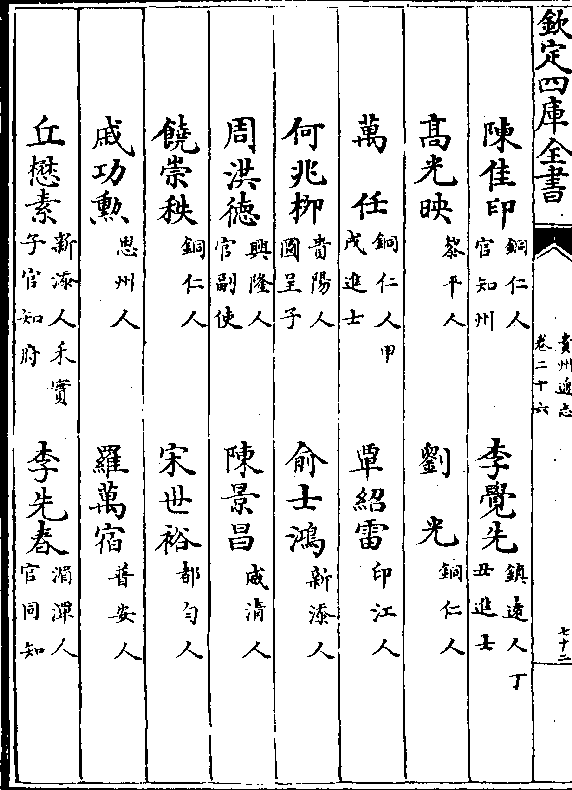 欽定四庫全書
貴州通志
卷二十六
七十二
陳佳印 銅仁人官知州
李覺先 鎮遠人丁丑進士
高光映 黎平人
劉光 銅仁人
萬任 銅仁人甲戌進士
覃紹雷 印江人
何兆柳 貴陽人圖呈子
俞士鴻 新添人
周洪德 興隆人官副使
陳景昌 威清人
饒崇秩 銅仁人
宋世裕 都勻人
戚功勲 思州人
羅萬宿 普安人
丘懋素 新添人禾實子官知府
李先春 湄潭人官同知